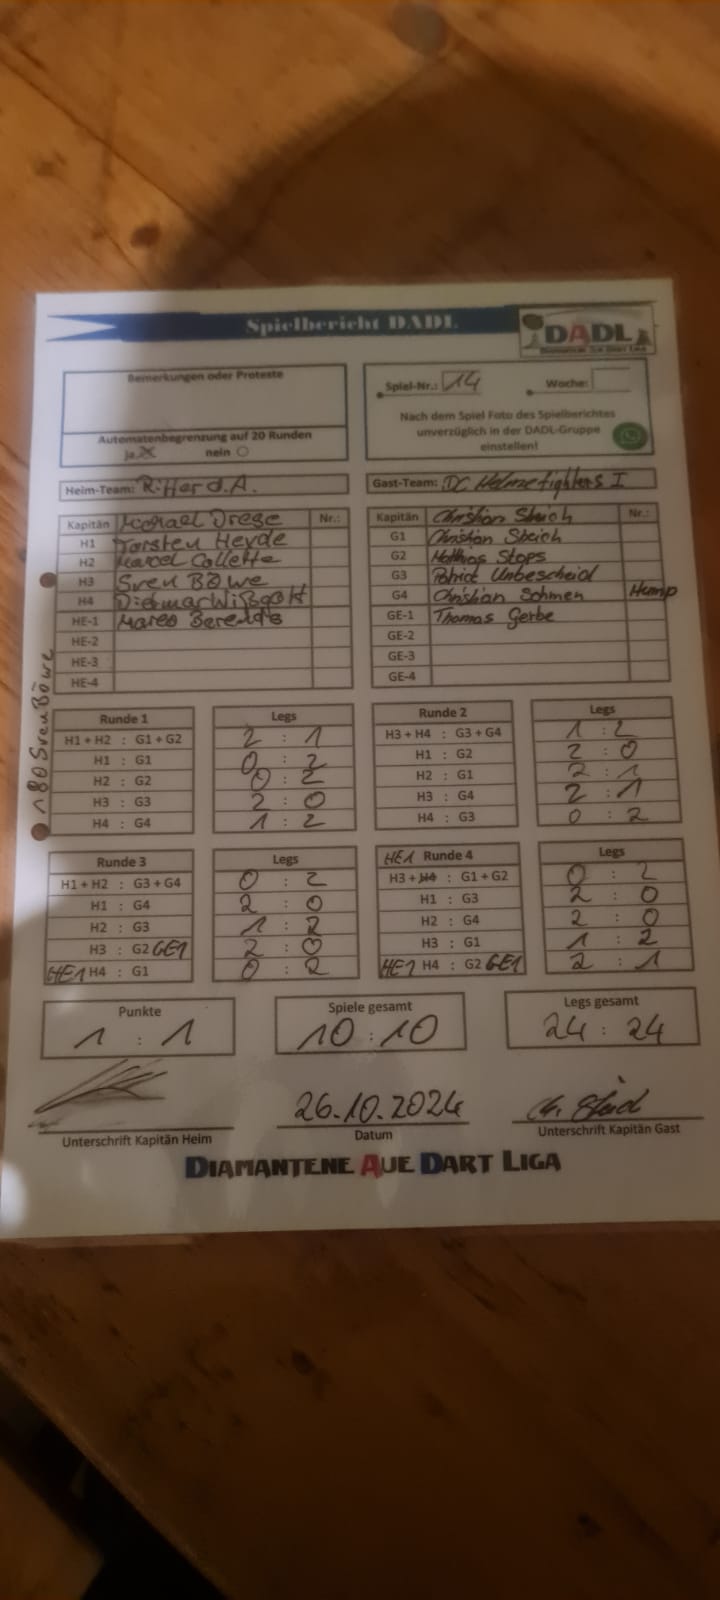 Spielbericht DADL
DADL
Diamantene Aue Dart Liga
Bemerkungen oder Proteste
Automatenbegrenzung auf 20 Runden
ja nein
Spiel-Nr.: 14 Woche:
Nach dem Spiel Foto des Spielberichtes
unverzüglich in der DADL-Gruppe
einstellen!
Heim-Team: Ritter d.A.
Kapitän Michael Drege Nr.:
H1 Torsten Heyde
H2 Marcel Collette
H3 Sven Böwe
H4 Dietmar Wißgott
HE-1 Marco Berends
HE-2
HE-3
HE-4
Gast-Team: DC Helmefighters I
Kapitän Christian Steich Nr.:
G1 Christian Steich
G2 Matthias Stops
G3 Patrick Unbescheid
G4 Christian Sohmen
GE-1 Thomas Gerbe
GE-2
GE-3
GE-4
180 Sven Böwe
Runde 1 Legs
H1 + H2 : G1 + G2 2 : 1
H1 : G1 0 : 2
H2 : G2 0 : 2
H3 : G3 2 : 0
H4 : G4 1 : 2
Runde 2 Legs
H3 + H4 : G3 + G4 1 : 2
H1 : G2 2 : 0
H2 : G1 2 : 1
H3 : G4 2 : 1
H4 : G3 0 : 2
Runde 3 Legs
H1 + H2 : G3 + G4 0 : 2
H1 : G4 2 : 0
H2 : G3 1 : 2
H3 : G2 GE1 2 : 0
HE1 H4 : G1 0 : 2
HE1 Runde 4 Legs
H3 + H4 : G1 + G2 0 : 2
H1 : G3 2 : 0
H2 : G4 2 : 0
H3 : G1 1 : 2
HE1 H4 : G2 GE1 2 : 1
Punkte
1 : 1
Spiele gesamt
10 : 10
Legs gesamt
24 : 24
Unterschrift Kapitän Heim
26.10.2024
Datum
Ch. Steich
Unterschrift Kapitän Gast
Diamantene Aue Dart Liga